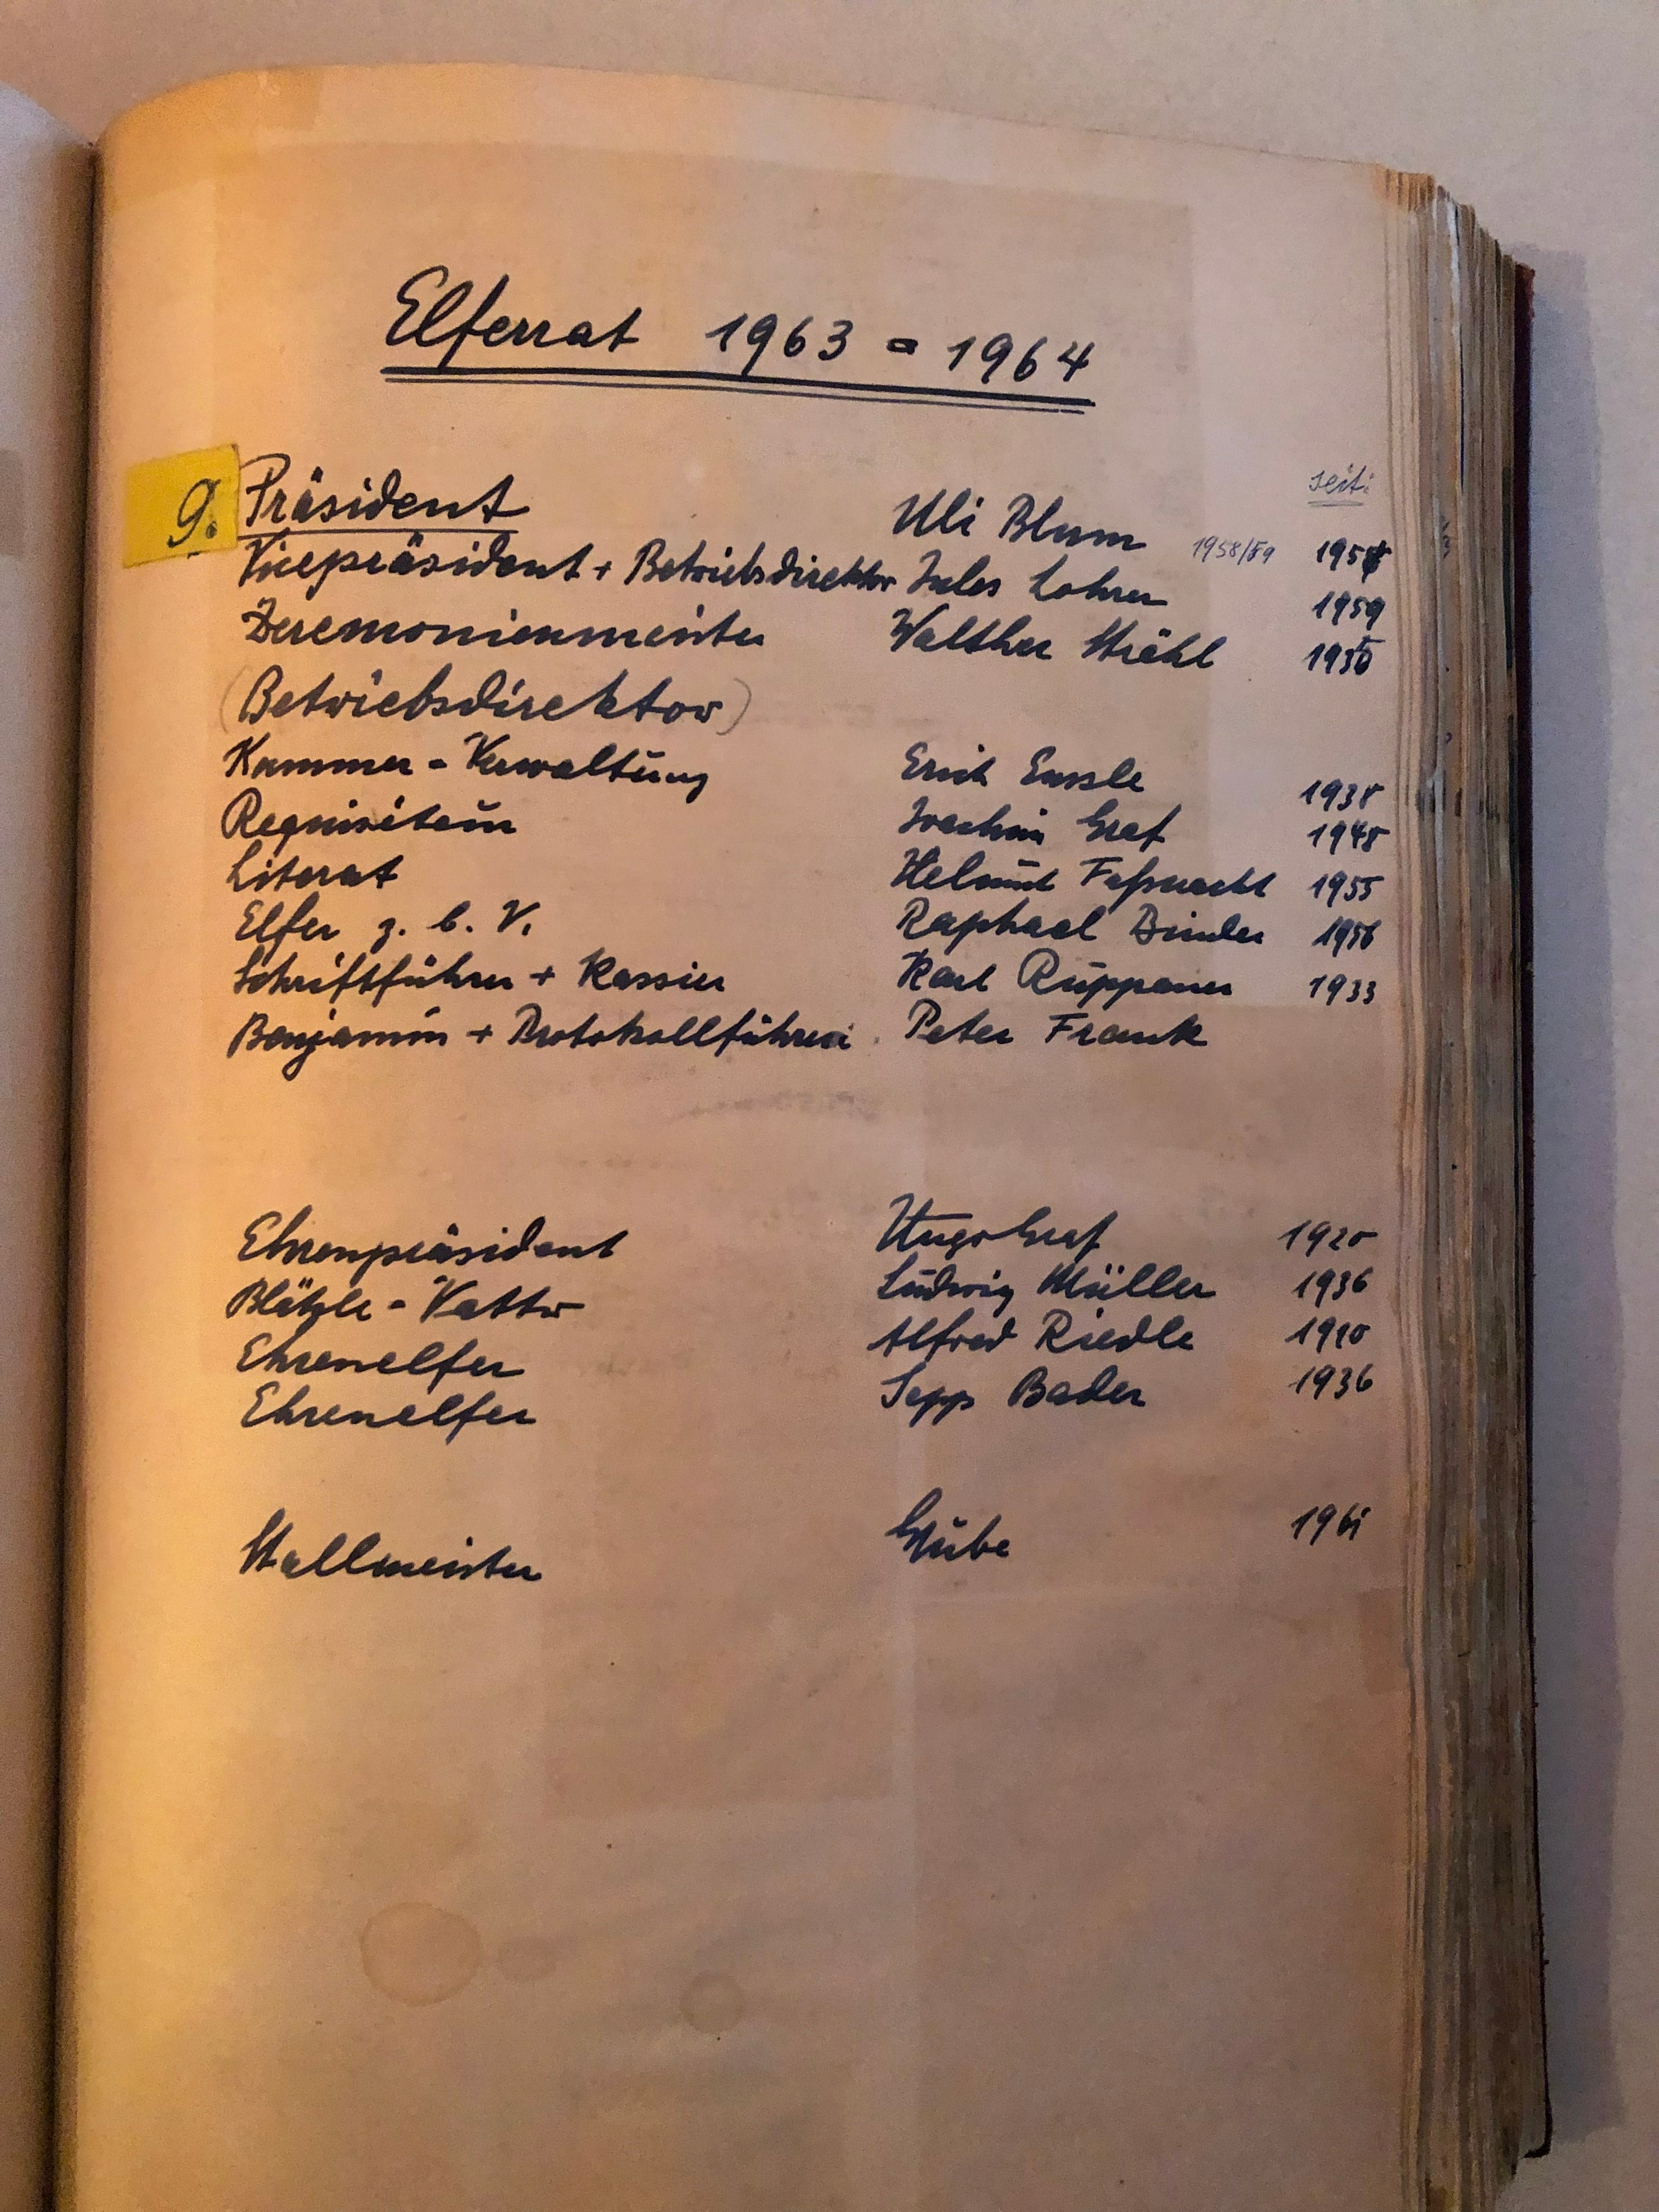 Elferrat 1963 = 1964
seit:
9. Präsident Uli Blum 1958/59
Vicepräsident + Betriebsdirektor Jules Lohrer 1959
Zeremonienmeister Walther Strähl 1950
(Betriebsdirektor)
Kammer - Verwaltung Erich 1938
Requisiteur Joachim Graf 1948
Literat Helmut Faßnacht 1955
Elfer z. b. V. Raphael Binder 1956
Schriftführer + Kassier Karl Ruppaner 1933
Benjamin + Protokollführer Peter Frank
Ehrenpräsident Hugo Graf 1920
Blätzle - Vatter Ludwig Müller 1936
Ehrenelfer Alfred Riedle
Ehrenelfer Sepp Bader 1936
Stallmeister Grübe 1961